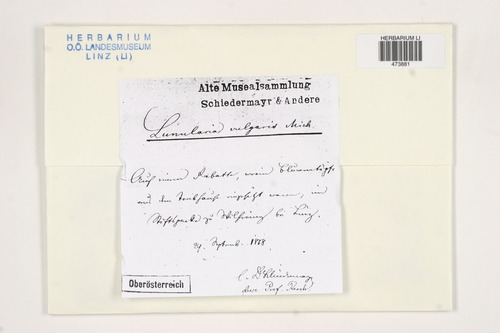 HERBARIUM
O.Ö. LANDESMUSEUM
LINZ (LI)
HERBARIUM LI
473881
Alte Musealsammlung
Schiedermayr & Andere
Lunularia vulgaris Mich.
Auf einer Rabatte, worin Blumentöpfe
aus dem Treibhause eingesetzt waren, im
Stiftsgarten zu Wilhering bei Linz.
29. Septemb. 1858
Dr. Schiedermayr
Oberösterreich